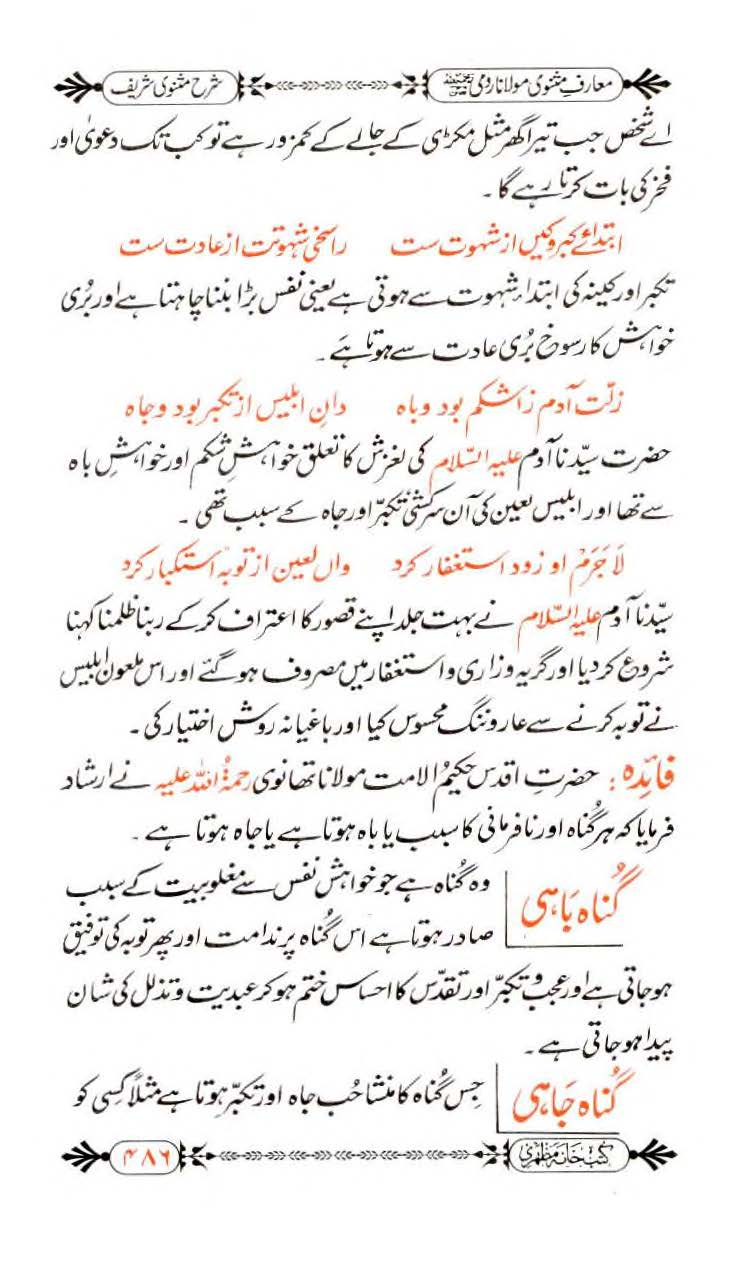 معارفِ مثنوی مولانا رومی رحمۃ اللہ علیہ
شرح مثنوی شریف
اے شخص جب تیرا گھر مثل مکڑی کے جالے کے کمزور ہے تو کب تک دعویٰ اور
فخر کی بات کرتا رہے گا ۔
ابتدائے کبر و کیں از شہوت ست راسخی شہوتت از عادت ست
تکبر اور کینہ کی ابتداء شہوت سے ہوتی ہے یعنی نفس بڑا بننا چاہتا ہے اور بُری
خواہش کا رسوخ بُری عادت سے ہوتا ہَے ۔
زلّت آدم ز اشکم بود و باہ دانِ ابلیس از تکبر بود و جاہ
حضرت سیّدنا آدم علیہ السّلام کی لغزش کا تعلق خواہشِ شکم اور خواہشِ باہ
سے تھا اور ابلیس لعین کی آن سرکشی تکبّر اور جاہ کے سبب تھی ۔
لَا جَرَمْ او زود استغفار کرد واں لعین از توبہ استکبار کرد
سیّدنا آدم علیہ السّلام نے بہت جلد اپنے قصور کا اعتراف کر کے ربنا ظلمنا کہنا
شروع کر دیا اور گریہ و زاری و استغفار میں مصروف ہو گئے اور اس ملعون ابلیس
نے توبہ کرنے سے عار و ننگ محسوس کیا اور باغیانہ روش اختیار کی ۔
فائدہ : حضرتِ اقدس حکیمُ الامت مولانا تھانوی رحمۃُ اللہ علیہ نے ارشاد
فرمایا کہ ہر گُناہ اور نافرمانی کا سبب یا باہ ہوتا ہے یا جاہ ہوتا ہے ۔
گُناہ بَاہی
وہ گُناہ ہے جو خواہش نفس سے مغلوبیت کے سبب
صادر ہوتا ہے اس گُناہ پر ندامت اور پھر توبہ کی توفیق
ہو جاتی ہے اور عجب و تکبّر اور تقدّس کا احساس ختم ہو کر عبدیت و تذلل کی شان
پیدا ہو جاتی ہے ۔
گُناہ جَاہی
جِس گُناہ کا منشا حُب جاہ اور تکبّر ہوتا ہے مثلاً کِسی کو
کتب خانہ مظہری
۴۸۶